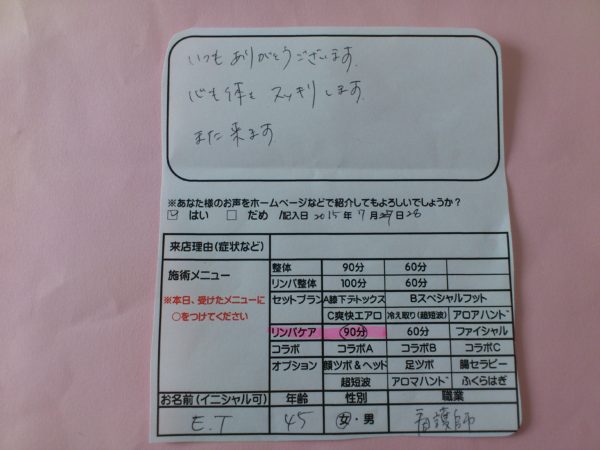 いつもありがとうございます.
心も体も スッキリします.
また来ます
※あなた様のお声をホームページなどで紹介してもよろしいでしょうか?
☑ はい □ だめ /記入日 2015 年 7 月 27 日 28
来店理由(症状など)
施術メニュー 整体 90分 60分
リンパ整体 100分 60分
※本日、受けたメニューに セットプラン A膝下デトックス Bスペシャルフット
○をつけてください C爽快エアロ 冷え取り(超短波) アロアハンド
リンパケア 90分 60分 ファイシャル
コラボ コラボA コラボB コラボC
オプション 顔ツボ&ヘッド 足ツボ 腸セラピー
超短波 アロマハンド ふくらはぎ
お名前(イニシャル可) 年齢 性別 職業
E.T 45 女・男 看護師